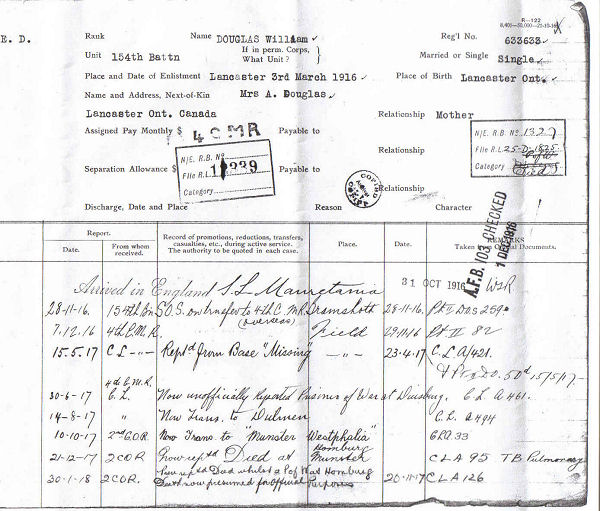 R—122
E. D. Rank Name DOUGLAS William Reg'l No. 633633
Unit 154th Battn If in perm. Corps, What Unit? Married or Single Single
Place and Date of Enlistment Lancaster 3rd March 1916 Place of Birth Lancaster Ont.
Name and Address, Next-of-Kin Mrs A. Douglas
Lancaster Ont. Canada Relationship Mother
Assigned Pay Monthly $ 4 CMR Payable to Relationship
N/E. R.B. No
File R.L.
Category
N/E. R.B. No 132
File R.L. 25-D-1825
Category Died
Separation Allowance $ Payable to Relationship
Discharge, Date and Place Reason Character
A.F.B. 103 CHECKED
1 DEC 1916
Report. Record of promotions, reductions, transfers, casualties, etc., during active service. The authority to be quoted in each case. Place. Date. REMARKS Documents.
Date. From whom received.
Arrived in England S.S. Mauretania 31 OCT 1916
28-11-16. 154th Bn S.O.S. on transfer to 4th C.M.R. Bramshott 28-11-16. Pt II D.O. 259
(overseas)
7.12.16 4th C.M.R. Field 29.11.16 Pt II 82
15.5.17 C L -"- Rept'd from Base "Missing -"- 23.4.17 C.L A/421.
4th C.M.R.
30-6-17 C.L. Now unofficially Reported Prisoner of War at Duisburg. C.L A 461.
14-8-17 " Now Trans. to Dulmen C.L. A 494
10-10-17 2nd COR. Now Trans to "Munster Westphalia" 33
Homburg
21-12-17 2 COR. Now rep'd Died at Munster CLA 95 TB Pulmonary
Prev rep'd Died whilst a P of War Homburg
30-1-18 2 COR. Death now presumed for Official Purposes 20-11-17 CLA 126